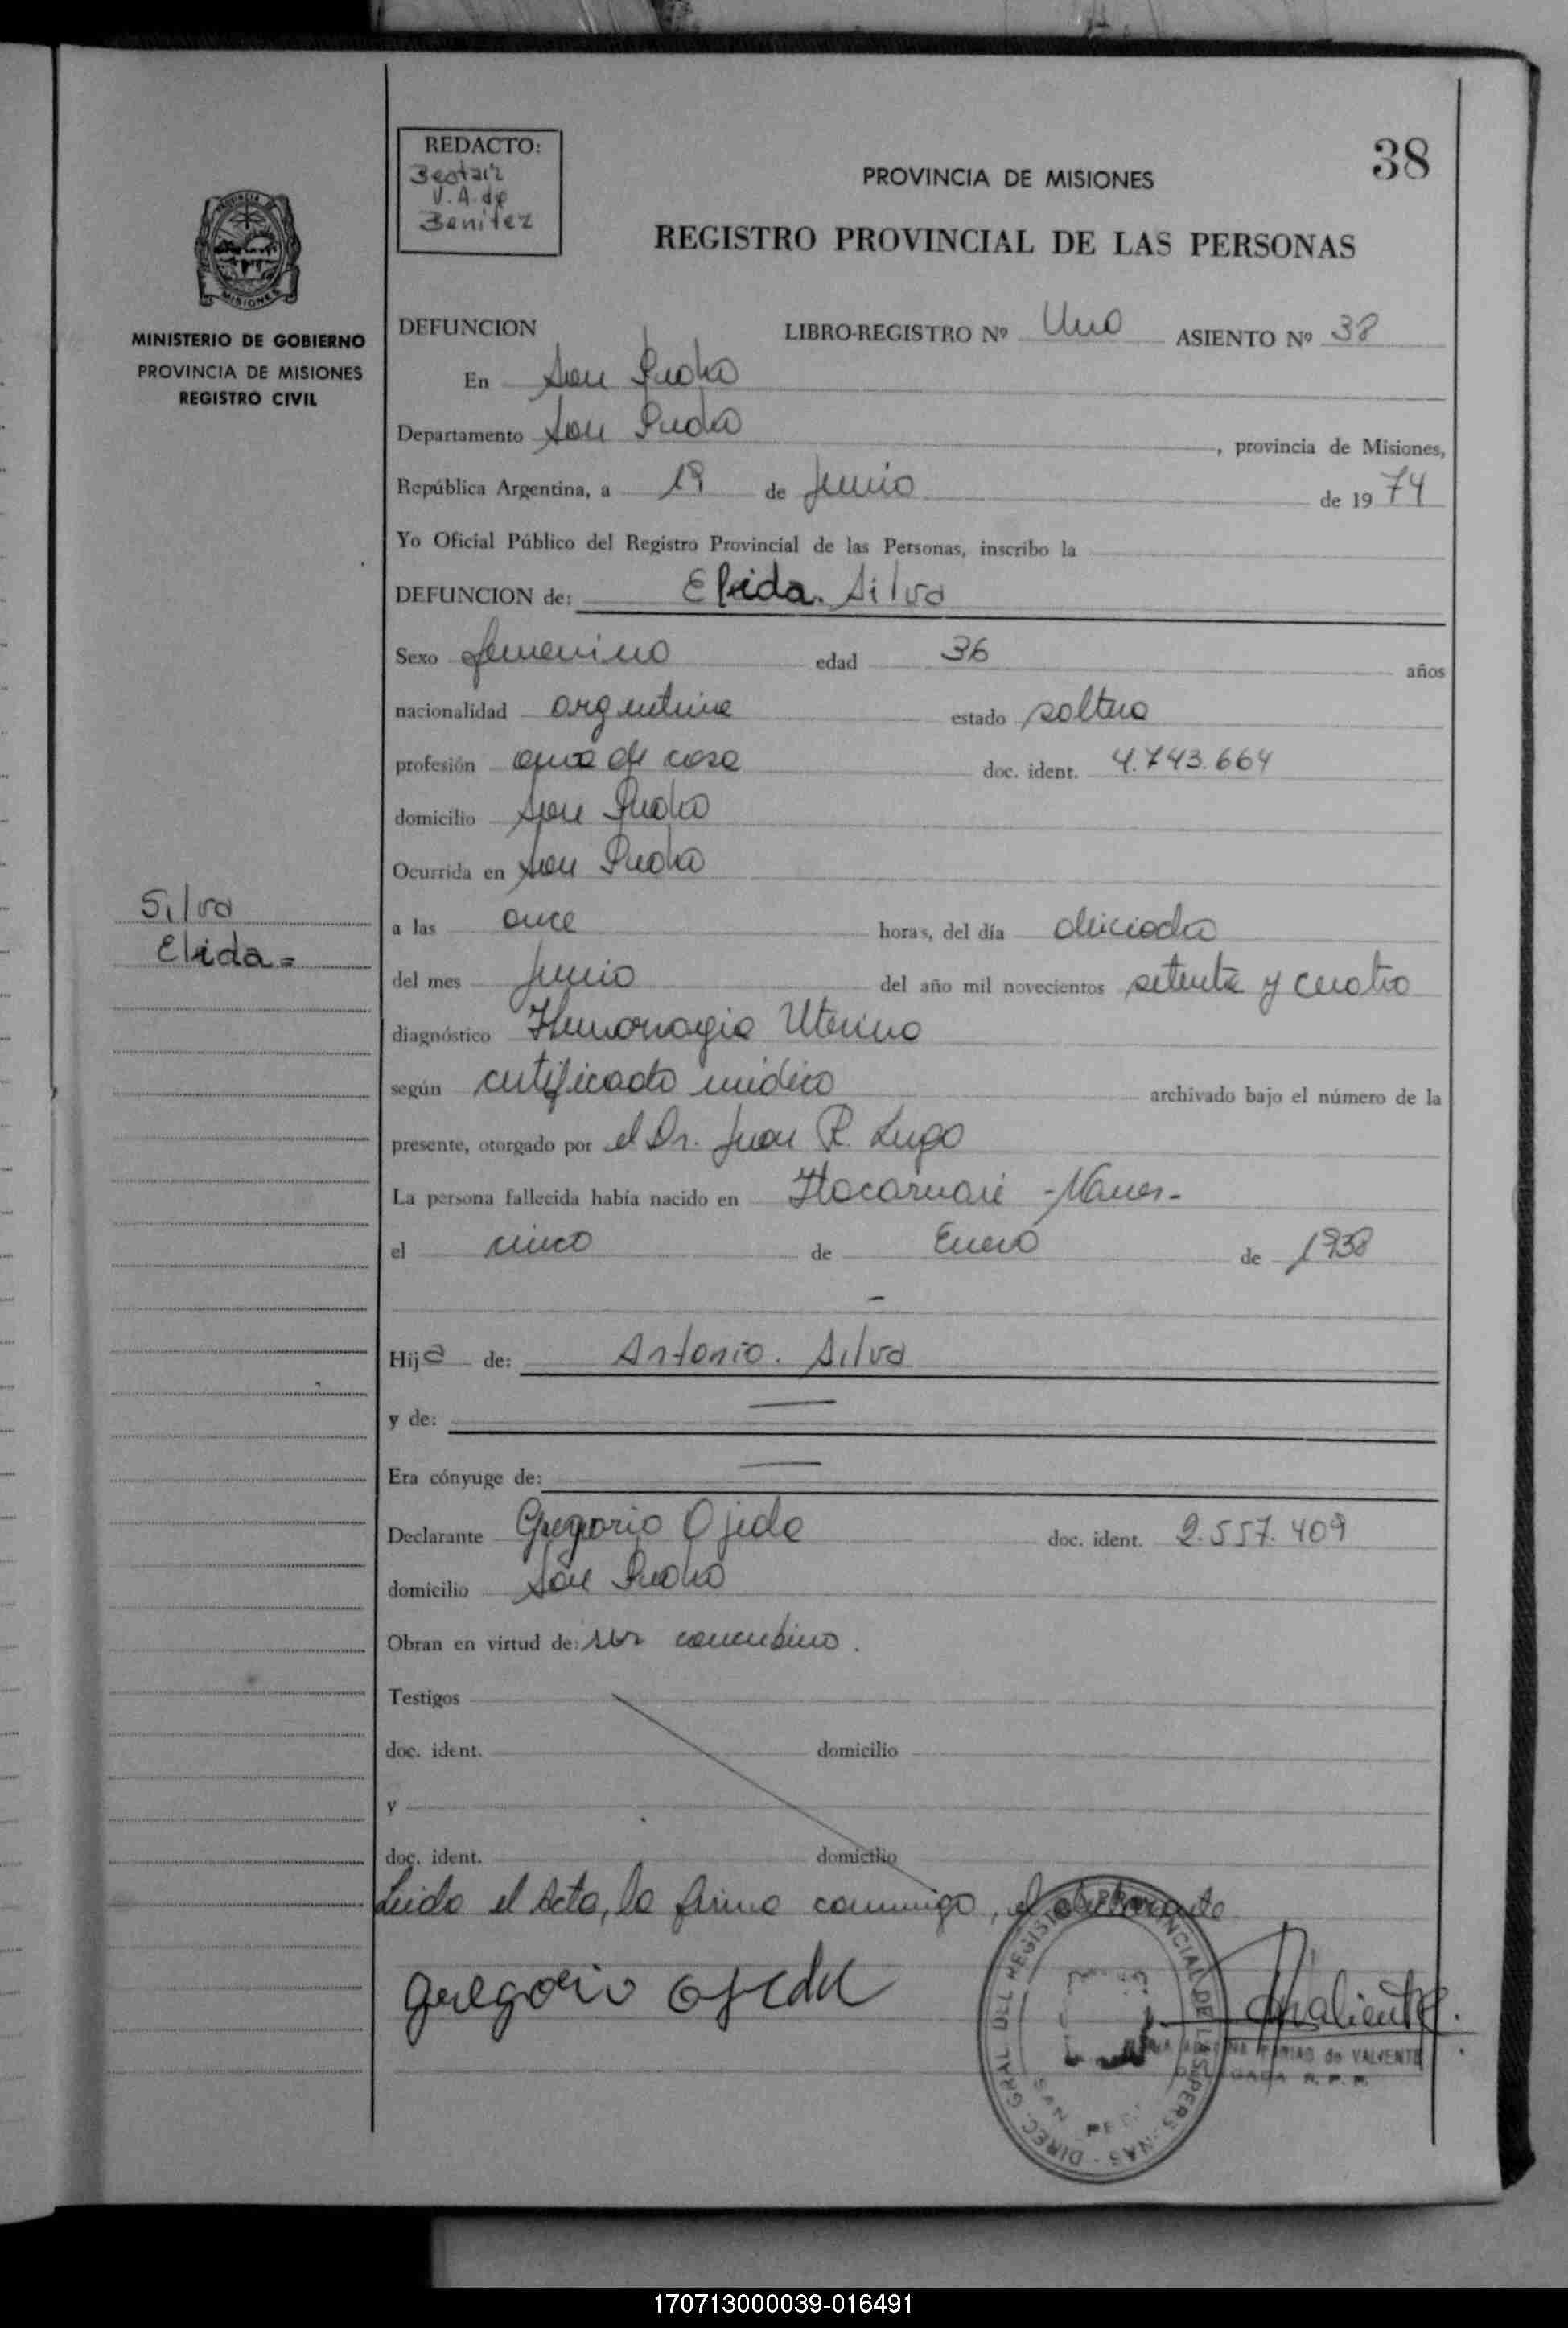 38
REDACTO:
Beatriz
V. A. de
Benitez
PROVINCIA DE MISIONES
REGISTRO PROVINCIAL DE LAS PERSONAS
MINISTERIO DE GOBIERNO
PROVINCIA DE MISIONES
REGISTRO CIVIL
DEFUNCION LIBRO-REGISTRO Nº Uno ASIENTO Nº 38
En San Pedro
Departamento San Pedro, provincia de Misiones,
República Argentina, a 19 de Junio de 1974
Yo Oficial Público del Registro Provincial de las Personas, inscribo la
DEFUNCION de: Elida Silva
Sexo femenino edad 36 años
nacionalidad argentina estado soltera
profesión ama de casa doc. ident. 4.743.664
domicilio San Pedro
Ocurrida en San Pedro
Silva
Elida=
a las once horas, del día dieciocho
del mes Junio del año mil novecientos setenta y cuatro
diagnóstico Hemorragia Uterina
según certificado médico archivado bajo el número de la
presente, otorgado por el Dr. Juan R. Lugo
La persona fallecida había nacido en Itacaruaré -Mnes-
el cinco de Enero de 1938
-
Hija de: Antonio. Silva
y de: —
Era cónyuge de: —
Declarante Gregorio Ojeda doc. ident. 2.557.409
domicilio San Pedro
Obran en virtud de: ser concubino.
Testigos
doc. ident. domicilio
y
doc. ident. domicilio
Leida el Acta, la firma conmigo, el declarante
gregorio ojeda
DIREC. GRAL DEL REGISTRO PROVINCIAL DE LAS PERSONAS
SAN PEDRO
de VALIENTE
R. P. P.
170713000039-016491